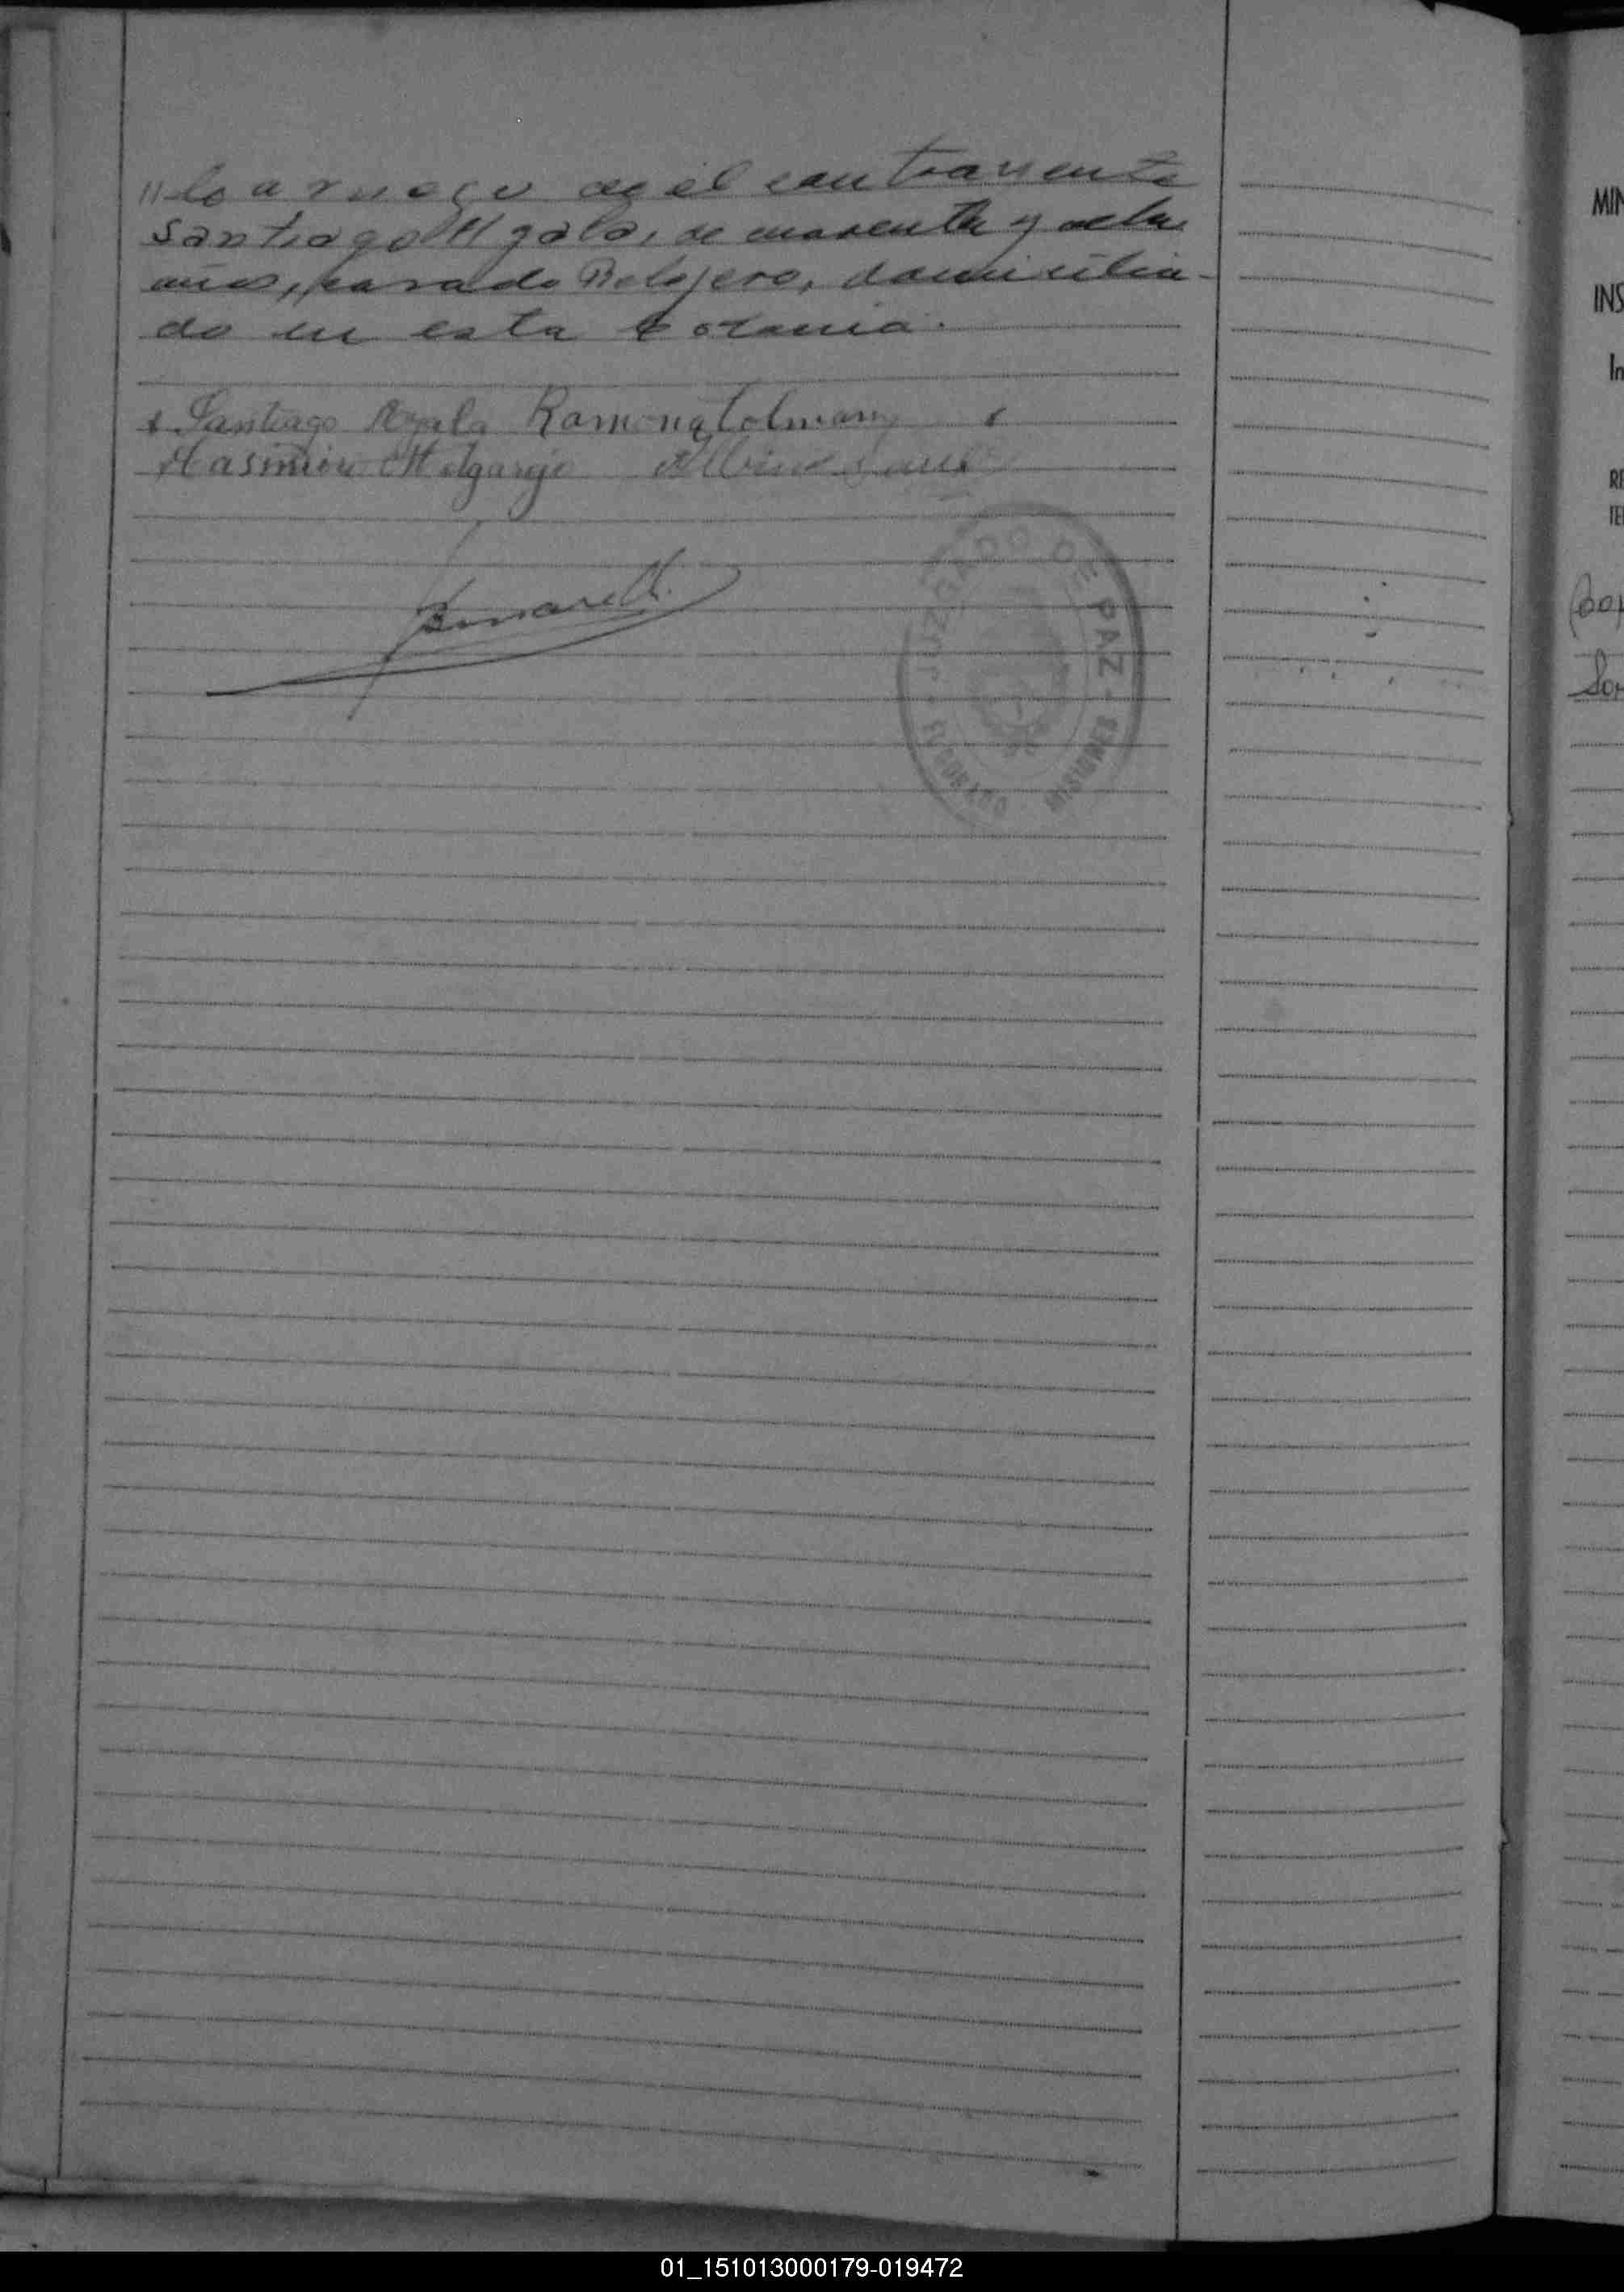 "lo a ruego de el contrayente
Santiago Ayala, de cuarenta y ocho
años, casado Relojero, domicilia-
do en esta Colonia.
Santiago Ayala Ramona Colman
Masimin Melgarejo Albino
JUZGADO DE PAZ - MISIONES
ELDORADO
MIN
INS
In
RE
TE
01_151013000179-019472